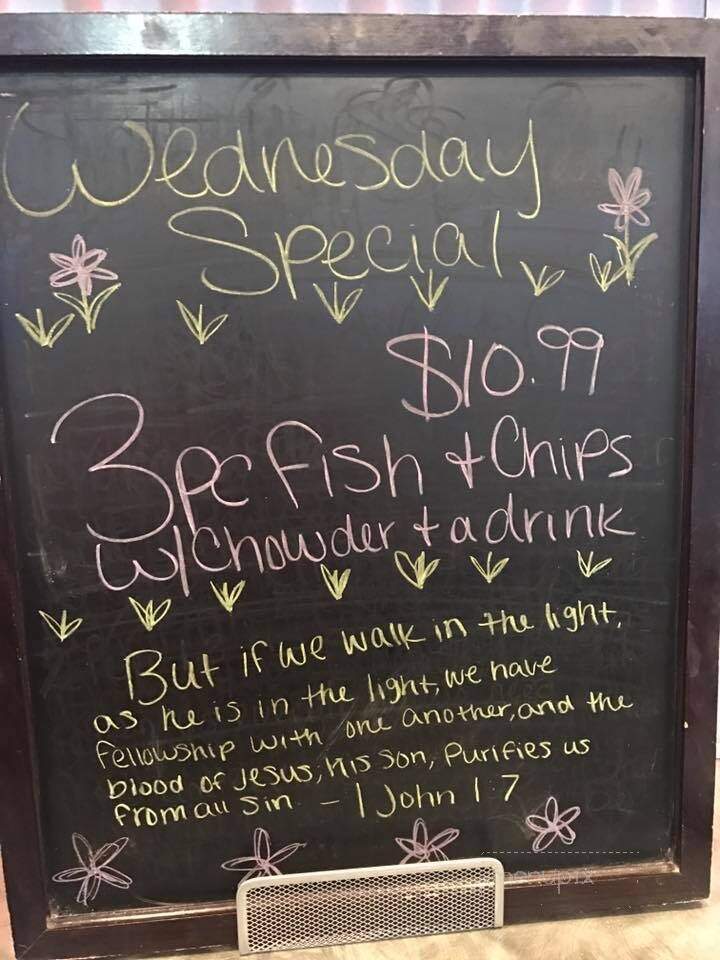 Wednesday
Special
$10.99
3pc fish + Chips
w/Chowder + a drink
But if we walk in the light,
as he is in the light, we have
fellowship with one another, and the
blood of Jesus, his son, purifies us
from all sin - 1 John 1:7